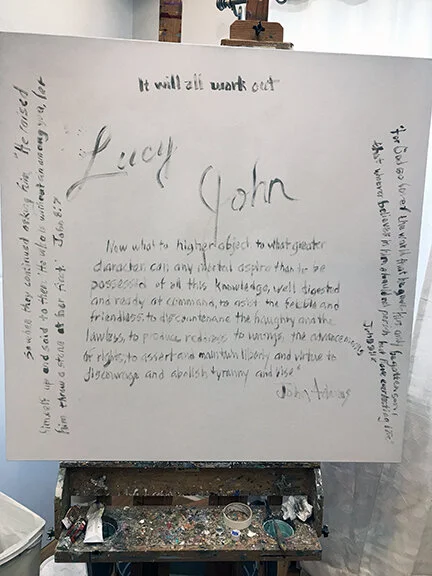 It will all work out
Lucy
John
Now what to higher object to what greater
character can any mortal aspire than to be
possessed of all this knowledge, well digested
and ready at command, to assist the feeble and
friendless, to discountenance the haughty and the
lawless, to produce redress to wrongs, the advancement
of rights, to assert and maintain liberty and virtue to
discourage and abolish tyranny and vise"
John Adams
So when they continued asking him, "He raised
himself up and said to them "He who is without sin among you,
him throw a stone at her first." John 8:7
"For God so loved the world that he gave His only begotten son
that whoever believes in him should not perish but have everlasting life"
John 3:16